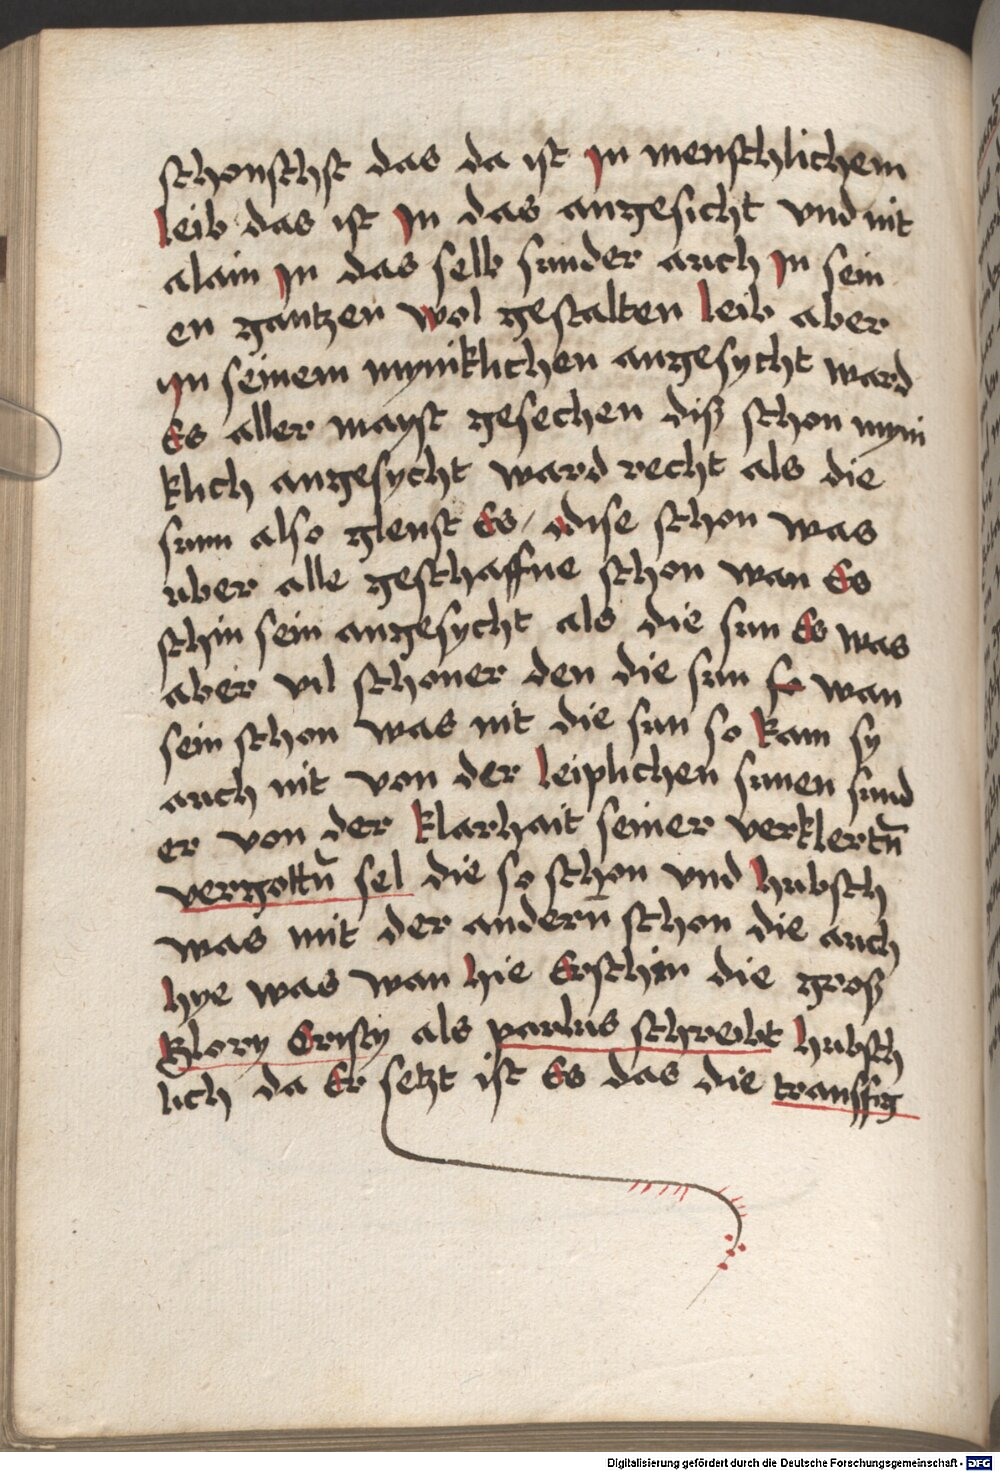 schonschst das da ist Jn menschlichem
leib das ist Jn das angesicht vnd nit
alain Jn das selb sunder auch Jn sein
en gantzen wol gestalten leib aber
yn seinem myniklichen angesycht ward
Es aller mayst gesechen diß schon myni
klich angesycht ward recht als die
sunn also glenst Es / dise schon was
uber alle geschaffne schon wan Es
schin sein angesycht als die sun Es was
aber vil schoner den die sun wan
sein schon was nit die sun so kam sy
auch nit von der leiplichen sunen sund
er von der klarhait seiner verklertn̄
vergottn̄ sel die so schon vnd hubsch
was mit der andern̄ schon die auch
hye was wan hie Erschin die groß
Glory Cristy als paulus schreibt hubsch
lich da Er seczt ist Es das die transfig
Digitalisierung gefördert durch die Deutsche Forschungsgemeinschaft - DFG